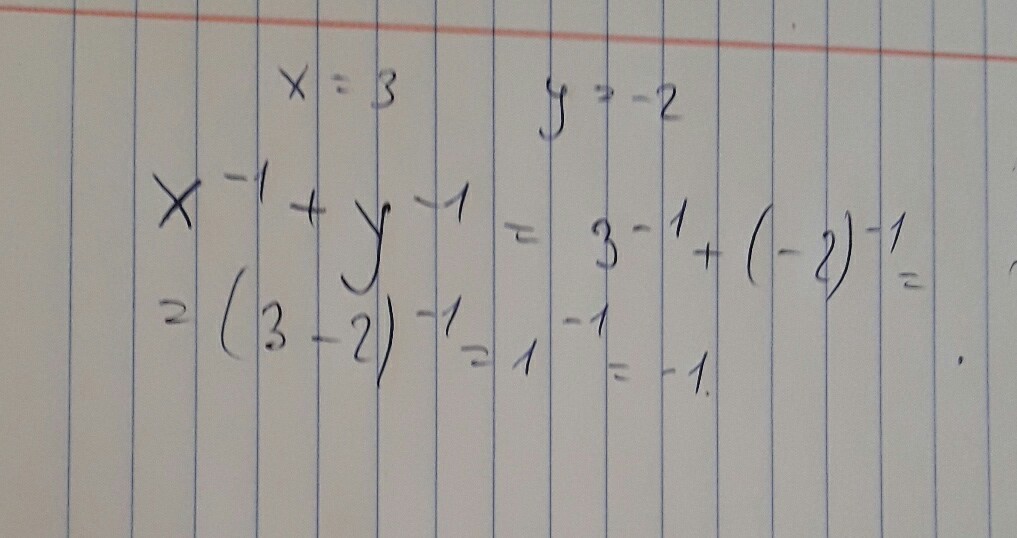 x = 3 y = -2
x⁻¹ + y⁻¹ = 3⁻¹ + (-2)⁻¹ =
= (3 - 2)⁻¹ = 1⁻¹ = -1.